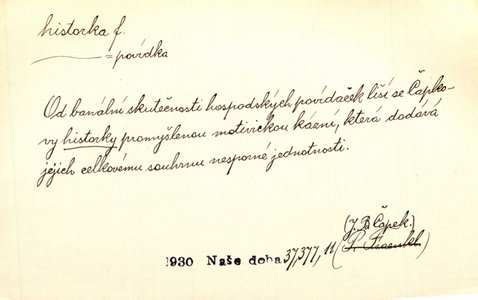 historka f.
——— = povídka
Od banální skutečnosti hospodských povídaček liší se Čapko-
vy historky promyšlenou motivickou kázní, která dodává
jejich celkovému souhrnu nesporné jednotnosti.
(J. B. Čapek.)
1930 Naše doba 37,377, 11 (